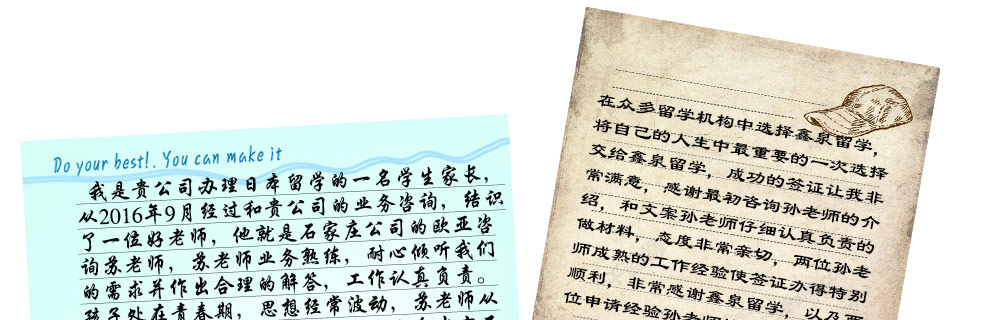 Do your best!. You can make it
我是贵公司办理日本留学的一名学生家长，
从2016年9月经过和贵公司的业务咨询，结识
了一位好老师，他就是石家庄公司的欧亚咨
询苏老师，苏老师业务熟练，耐心倾听我们
的需求并作出合理的解答，工作认真负责。
孩子处在青春期，思想经常波动，苏老师从
在众多留学机构中选择鑫泉留学，
将自己的人生中最重要的一次选择
交给鑫泉留学，成功的签证让我非
常满意，感谢最初咨询孙老师的介
绍，和文案孙老师仔细认真负责的
做材料，态度非常亲切，两位孙老
师成熟的工作经验使签证办得特别
顺利，非常感谢鑫泉留学，以及两
位申请经验孙老师